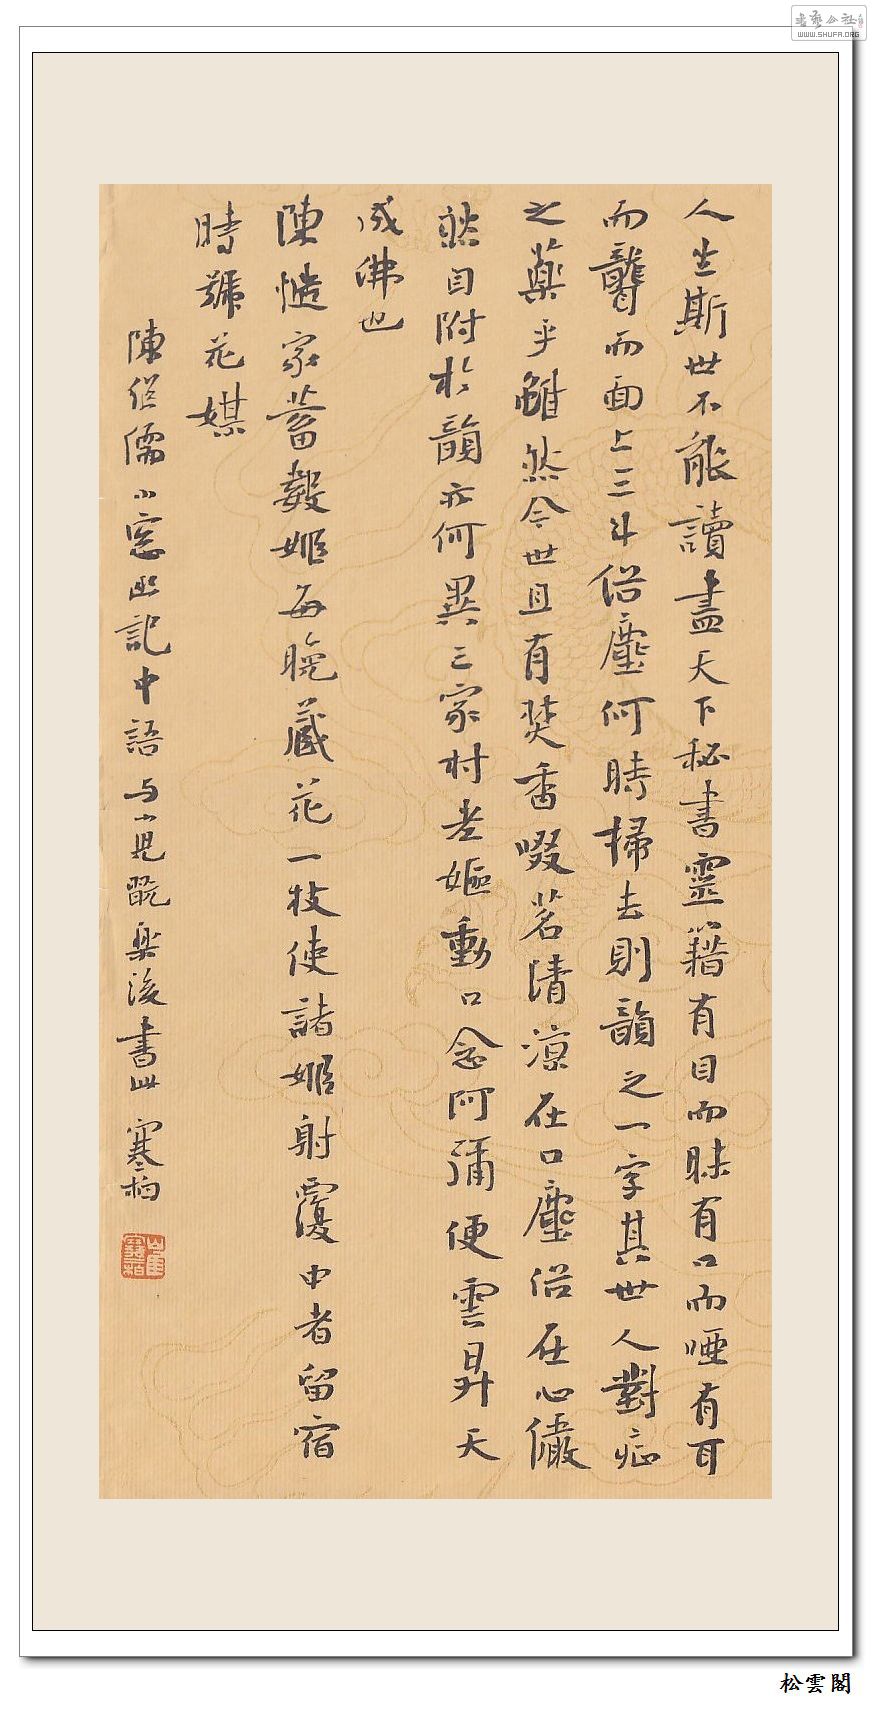 人生斯世不能讀盡天下秘書靈籍有目而昧有口而啞有耳
而聾而面上三斗俗塵何時掃去則韻之一字其世人對症
之藥乎雖然今世且有焚香啜茗清涼在口塵俗在心儼
然自附於韻亦何異三家村老嫗動口念阿彌便雲昇天
成佛也
陳慥家蓄數姬每晚藏花一枝使諸姬射覆中者留宿
時號花媒
陳繼儒小窓幽記中語与小兒翫樂後書此 寒柏
松雲閣
書藝公社
WWW.SHUFA.ORG